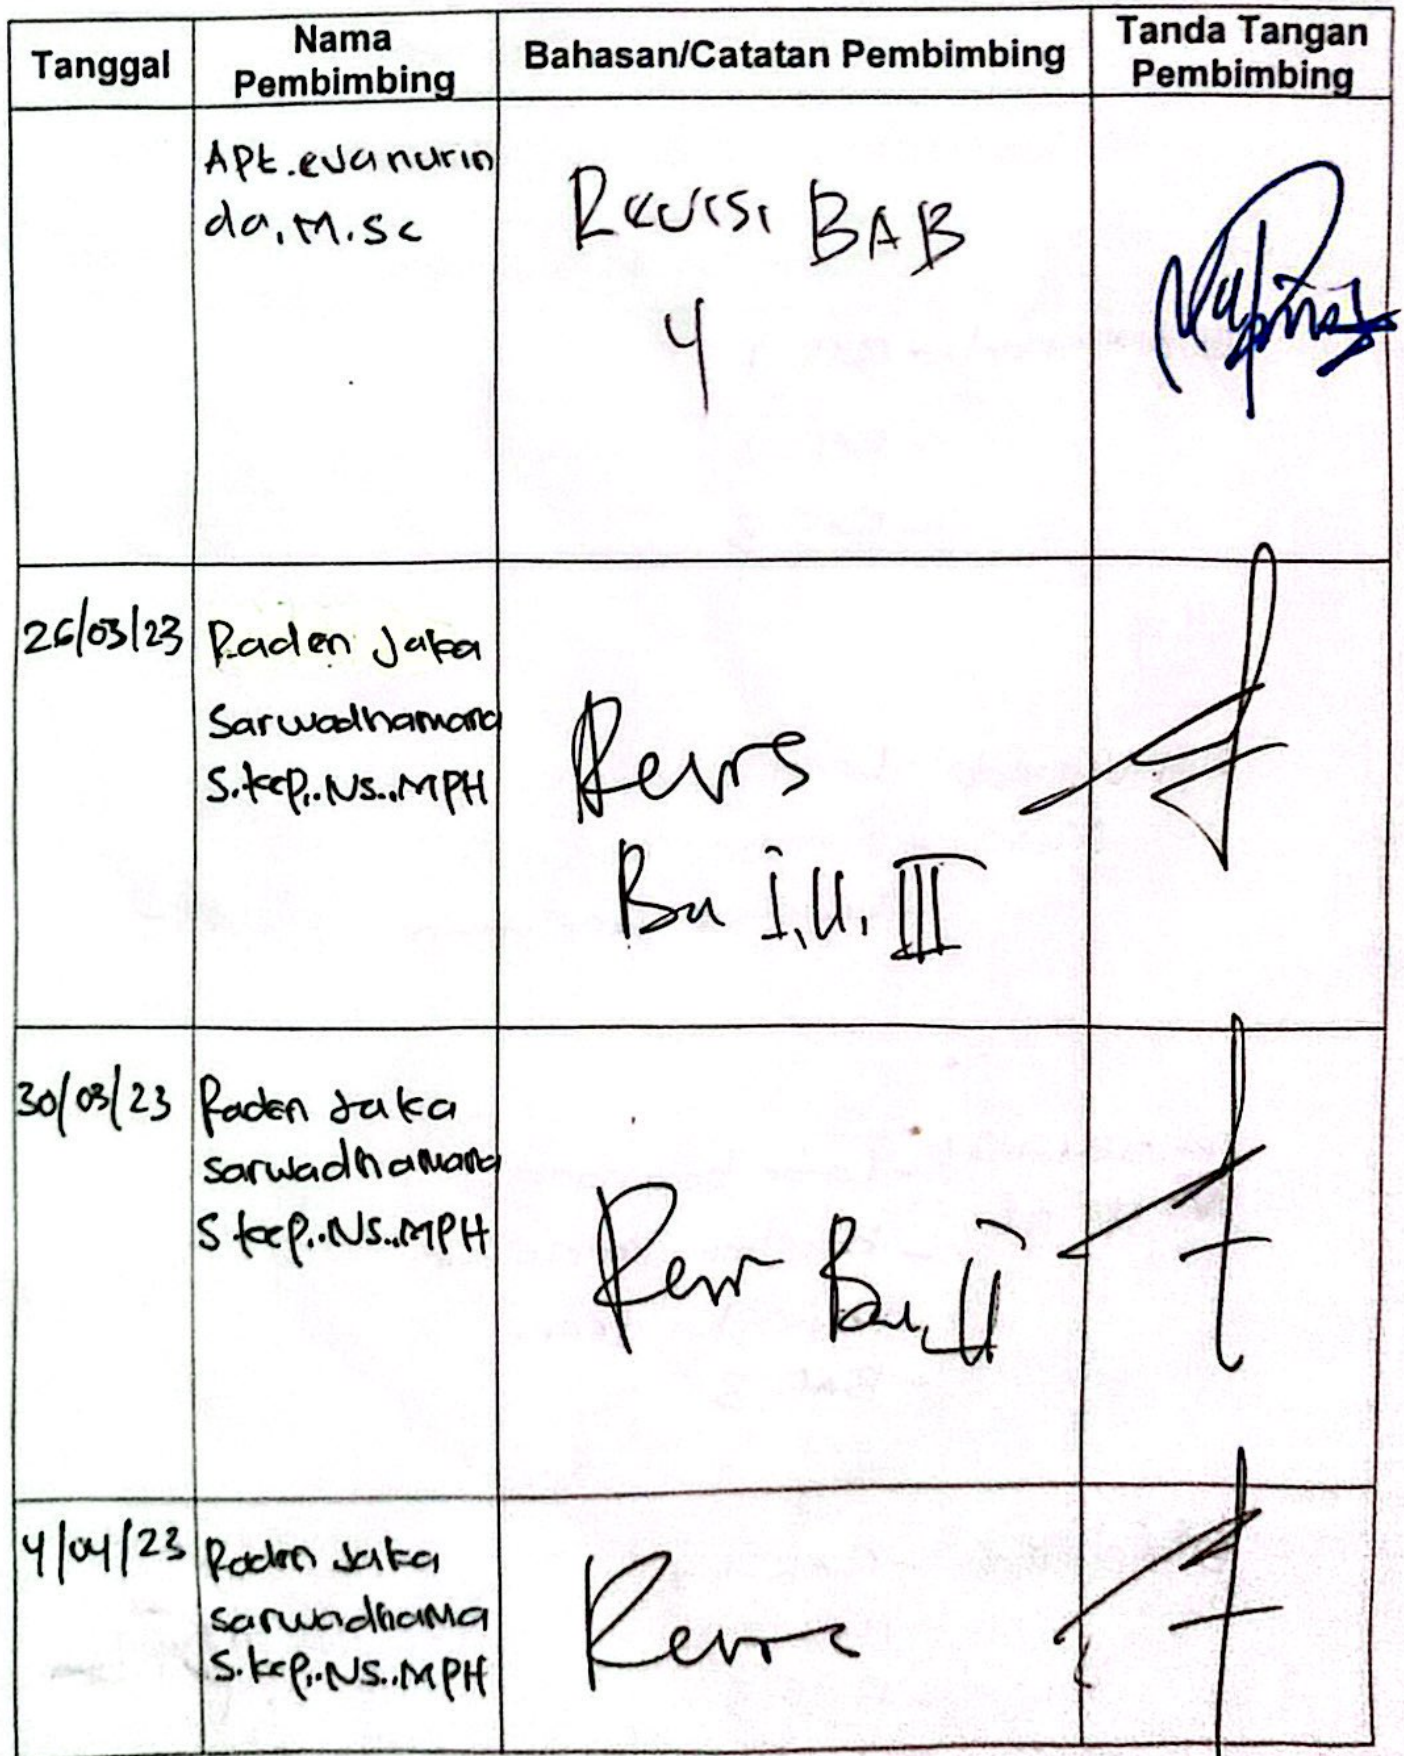 Tanggal
Nama
Pembimbing
Bahasan/Catatan Pembimbing
Tanda Tangan
Pembimbing
Apt. evanurin
da, M.Sc
Revisi BAB
4
26/03/23
Raden Jaka
Sarwadhamana
S.kep,.Ns..MPH
Revis
Ba I, II, III
30/03/23
Raden Jaka
sarwadhamana
S.kep,.Ns..MPH
Rev Ba, II
4/04/23
Raden Jaka
sarwadhama
S.kep,.Ns..MPH
Revis